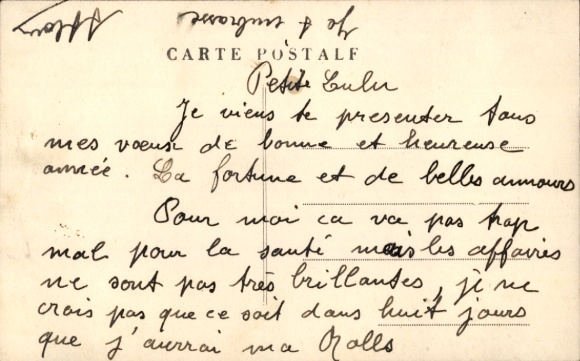 CARTE POSTALE
Petite Lulu
Je viens te presenter tous
mes vœux de bonne et heureuse
année. La fortune et de belles amours
Pour moi ca va pas trop
mal pour la santé mais les affaires
ne sont pas très brillantes, je ne
crois pas que ce soit dans huit jours
que j'aurrai ma Rolls
Je t embrasse